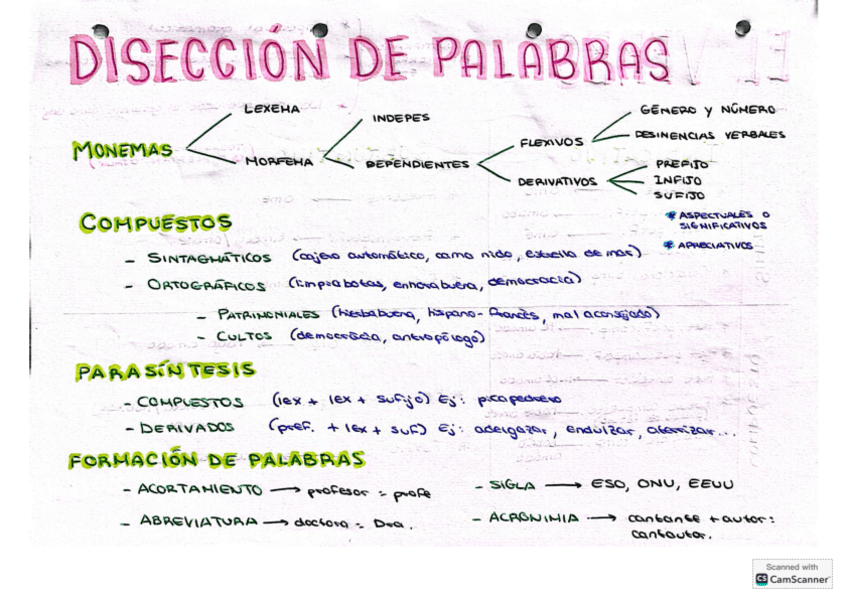 DISECCIÓN DE PALABRAS
MONEMAS
LEXEMA
MORFEMA
INDEPES
DEPENDIENTES
FLEXIVOS
DERIVATIVOS
GÉNERO Y NÚMERO
DESINENCIAS VERBALES
PREFIJO
INFIJO
SUFIJO
* ASPECTUALES O
SIGNIFICATIVOS
* APRECIATIVOS
COMPUESTOS
- SINTAGMÁTICOS (cajero automático, cama nido, estrella de mar)
- ORTOGRÁFICOS (limpiabotas, enhorabuena, democracia)
- PATRIMONIALES (hierbabuena, hispano-francés, mal aconsejado)
- CULTOS (democracia, antropólogo)
PARASÍNTESIS
- COMPUESTOS (lex + lex + sufijo) Ej: picapedrero
- DERIVADOS (pref. + lex + suf) Ej: adelgazar, endulzar, aterrizar...
FORMACIÓN DE PALABRAS
- ACORTAMIENTO → profesor = profe
- ABREVIATURA → doctora = Dra.
- SIGLA → ESO, ONU, EEUU
- ACRONIMIA → cantante + autor:
cantautor.
Scanned with
CS CamScanner